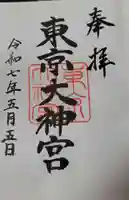 奉拝
東京大神宮
令和七年五月五日